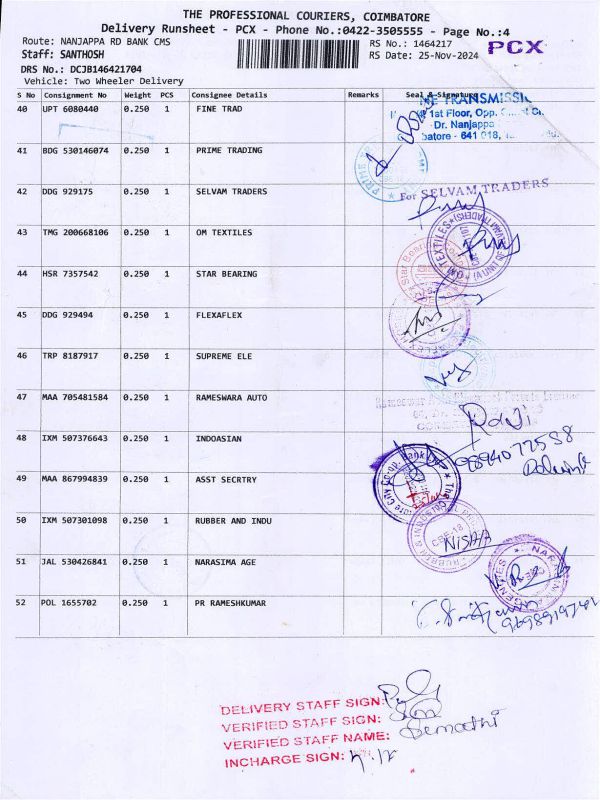 THE PROFESSIONAL COURIERS, COIMBATORE
Delivery Runsheet - PCX - Phone No.:0422-3505555 - Page No.:4
Route: NANJAPPA RD BANK CMS RS No.: 1464217 PCX
Staff: SANTHOSH RS Date: 25-Nov-2024
DRS No.: DCJB146421704
Vehicle: Two Wheeler Delivery
S No Consignment No Weight PCS Consignee Details Remarks Seal & Signature
40 UPT 6080440 0.250 1 FINE TRAD
TRANSMISSI
1st Floor, Opp.
Dr. Nanjappa
batore - 641 018,
41 BDG 530146074 0.250 1 PRIME TRADING
42 DDG 929175 0.250 1 SELVAM TRADERS
For SELVAM TRADERS
43 TMG 200668106 0.250 1 OM TEXTILES
44 HSR 7357542 0.250 1 STAR BEARING
45 DDG 929494 0.250 1 FLEXAFLEX
46 TRP 8187917 0.250 1 SUPREME ELE
47 MAA 705481584 0.250 1 RAMESWARA AUTO
Ravi
48 IXM 507376643 0.250 1 INDOASIAN
9894077538
49 MAA 867994839 0.250 1 ASST SECRTRY
50 IXM 507301098 0.250 1 RUBBER AND INDU
NISHA
51 JAL 530426841 0.250 1 NARASIMA AGE
52 POL 1655702 0.250 1 PR RAMESHKUMAR
DELIVERY STAFF SIGN:
VERIFIED STAFF SIGN:
VERIFIED STAFF NAME: Semathi
INCHARGE SIGN: